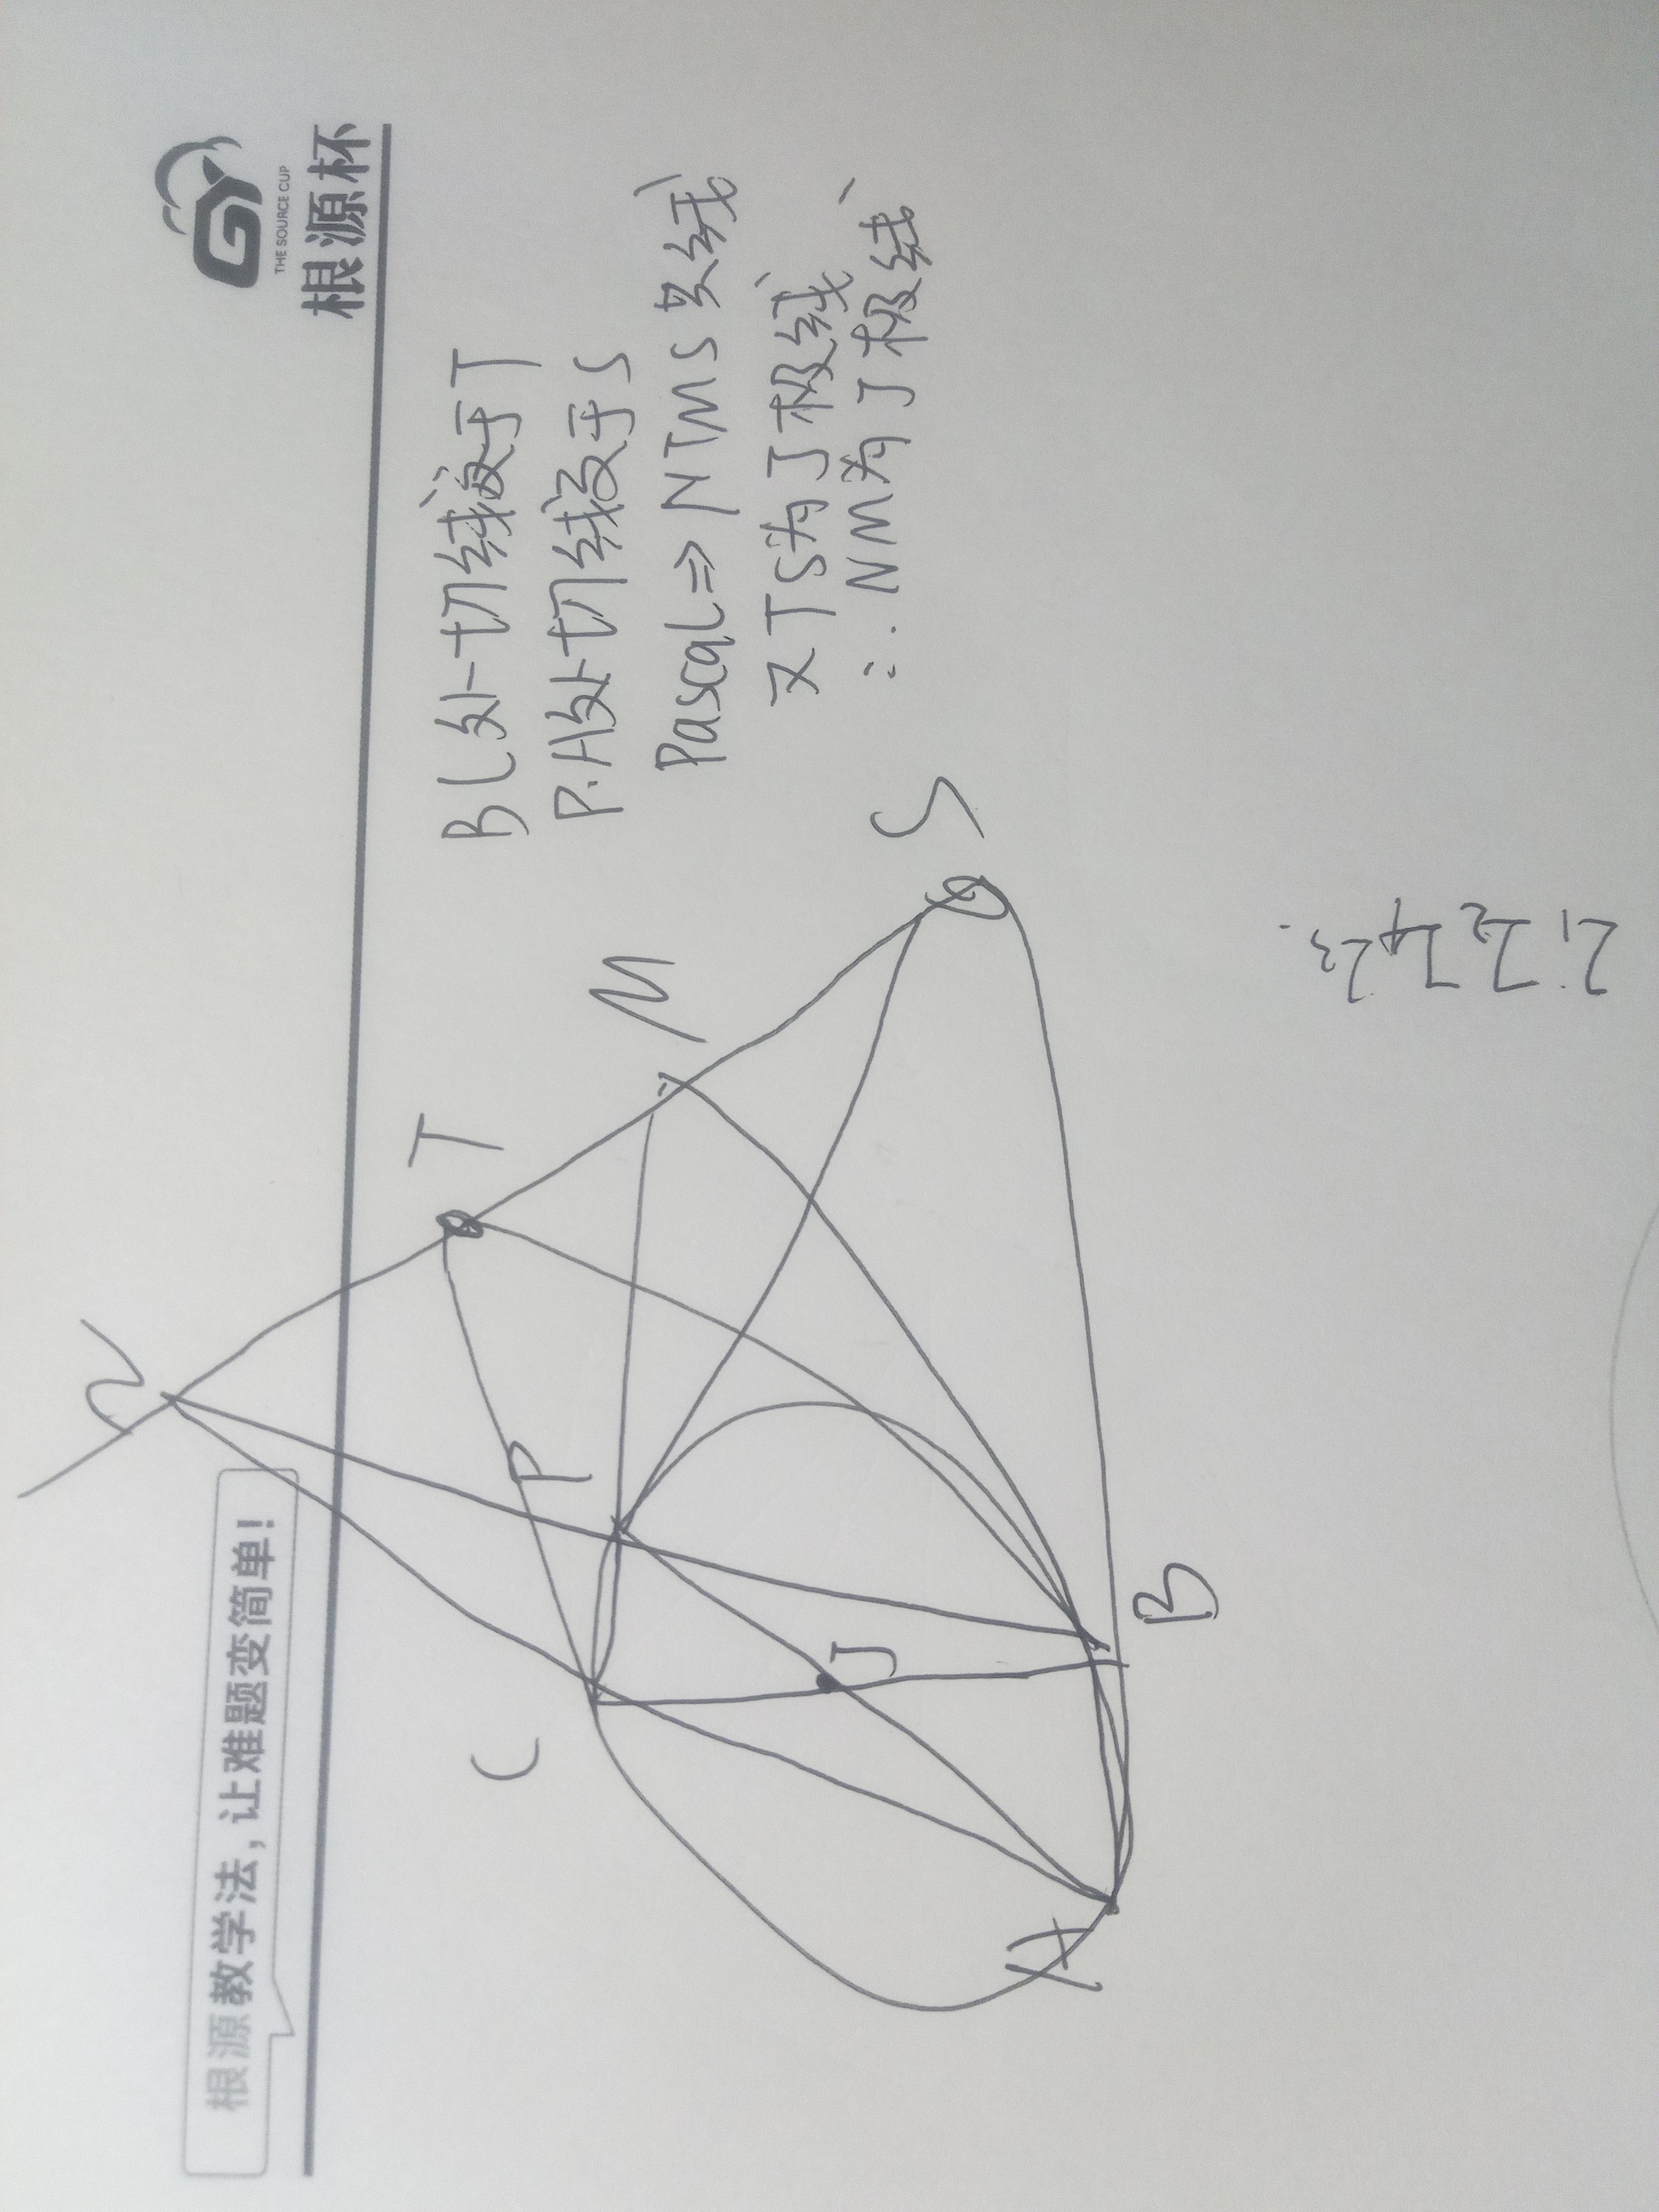 THE SOURCE CUP
根源杯
根源教学法,让难题变简单!
BC处切线交于T
P.A处切线交于S
Pascal⇒NTMS共线
又TS为J极线
∴NM为J极线
N
T
M
S
P
C
J
B
A